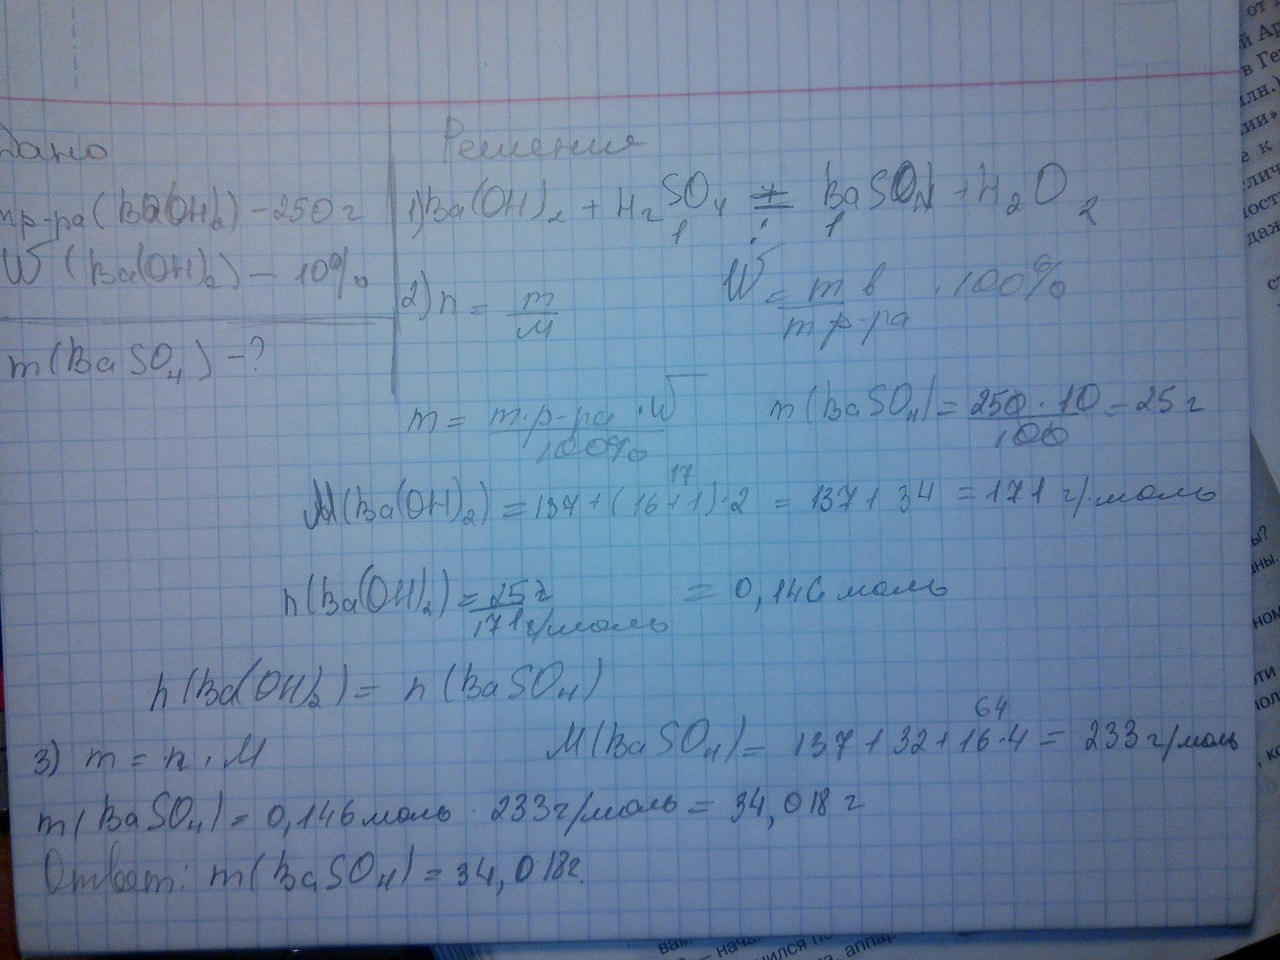 Дано
m р-ра (Ba(OH)₂) - 250 г
W (Ba(OH)₂) - 10%
m (BaSO₄) - ?
Решения
1) Ba(OH)₂ + H₂SO₄ = BaSO₄ + H₂O₂
1 : 1
2) n = m/M
W = m в / m р-ра · 100%
m = m р-ра · W / 100%
m (BaSO₄) = 250 · 10 / 100 = 25 г
17
M(Ba(OH)₂) = 137 + (16 + 1) · 2 = 137 + 34 = 171 г/моль
n(Ba(OH)₂) = 25 г / 171 г/моль = 0,146 моль
n(Ba(OH)₂) = n (BaSO₄)
64
3) m = n · M
M(BaSO₄) = 137 + 32 + 16 · 4 = 233 г/моль
m (BaSO₄) = 0,146 моль · 233 г/моль = 34,018 г
Ответ: m (BaSO₄) = 34,018 г.